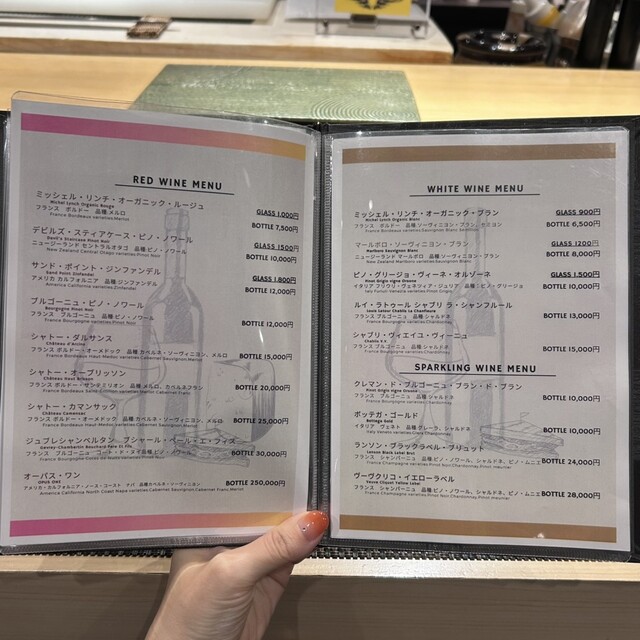 RED WINE MENU
ミッシェル・リンチ・オーガニック・ルージュ
Michel Lynch Organic Rouge
フランス ボルドー 品種:メルロ
France Bordeaux varieties:Merlot
GLASS 1,000円
BOTTLE 7,500円
デビルズ・スティアケース・ピノ・ノワール
Devil's Staircase Pinot Noir
ニュージーランド セントラルオタゴ 品種:ピノ・ノワール
New Zealand Central Otago varieties:Pinot Noir
GLASS 1500円
BOTTLE 10,000円
サンド・ポイント・ジンファンデル
Sand Point Zinfandel
アメリカ カルフォルニア 品種:ジンファンデル
America California varieties:Zinfandel
GLASS 1,800円
BOTTLE 12,000円
ブルゴーニュ・ピノ・ノワール
Bourgogne Pinot Noir
フランス ブルゴーニュ 品種:ピノ・ノワール
France Bourgogne varieties:Pinot Noir
BOTTLE 12,000円
シャトー・ダルサンス
フランス ボルドー・オーメドック 品種:カベルネ・ソーヴィニヨン、メルロ
BOTTLE 15,000円
シャトー・オーブリッソン
フランス ボルドー・サンテミリオン 品種:メルロ、カベルネフラン
BOTTLE 20,000円
シャトー・カマンサック
Château Camensac
フランス ボルドー・オーメドック 品種:カベルネ・ソーヴィニヨン、メルロ
BOTTLE 25,000円
ジュブレシャンベルタン ブシャール・ペール・エ・フィス
フランス ブルゴーニュ コート・ド・ヌイ 品種:ピノ・ノワール
BOTTLE 30,000円
オーパス・ワン
OPUS ONE
アメリカ・カルフォルニア・ノース・コースト ナパ 品種:カベルネ・ソーヴィニヨン
America California North Coast Napa varieties:Cabernet Sauvignon,Cabernet Franc,Merlot
BOTTLE 250,000円
WHITE WINE MENU
ミッシェル・リンチ・オーガニック・ブラン
Michel Lynch Organic Blanc
フランス ボルドー 品種:ソーヴィニヨン・ブラン、セミヨン
France Bordeaux varieties:Sauvignon Blanc,Semillon
GLASS 900円
BOTTLE 6,500円
マールボロ・ソーヴィニヨン・ブラン
Marlboro Sauvignon Blanc
ニュージーランド マールボロ 品種:ソーヴィニヨン・ブラン
New Zealand Marlboro varieties:Sauvignon Blanc
GLASS 1200円
BOTTLE 8,000円
ピノ・グリージョ・ヴィーネ・オルゾーネ
Pinot Grigio Vigne Orzone
イタリア フリウリ・ヴェネツィア・ジュリア 品種:ピノ・グリージョ
GLASS 1,500円
BOTTLE 10,000円
ルイ・ラトゥール シャブリ ラ・シャンフルール
Louis Latour Chablis La Chanfleure
フランス ブルゴーニュ 品種:シャルドネ
France Bourgogne varieties:Chardonnay
BOTTLE 13,000円
シャブリ・ヴィエイユ・ヴィーニュ
Chablis V.V.
フランス ブルゴーニュ 品種:シャルドネ
France Bourgogne varieties:Chardonnay
BOTTLE 15,000円
SPARKLING WINE MENU
クレマン・ド・ブルゴーニュ・ブラン・ド・ブラン
Pinot Grigio Vigne Orzone
フランス ブルゴーニュ 品種:シャルドネ
France Bourgogne varieties:Chardonnay
BOTTLE 10,000円
ボッテガ・ゴールド
Bottega Gold
イタリア ヴェネト 品種:グレーラ、シャルドネ
BOTTLE 10,000円
ランソン・ブラックラベル・ブリュット
Lanson Black Label Brut
フランス シャンパーニュ 品種:ピノ・ノワール、シャルドネ、ピノ・ムニエ
BOTTLE 24,000円
ヴーヴクリコ・イエローラベル
Veuve Cliquot Yellow Label
フランス シャンパーニュ 品種:ピノ・ノワール、シャルドネ、ピノ・ムニエ
BOTTLE 28,000円